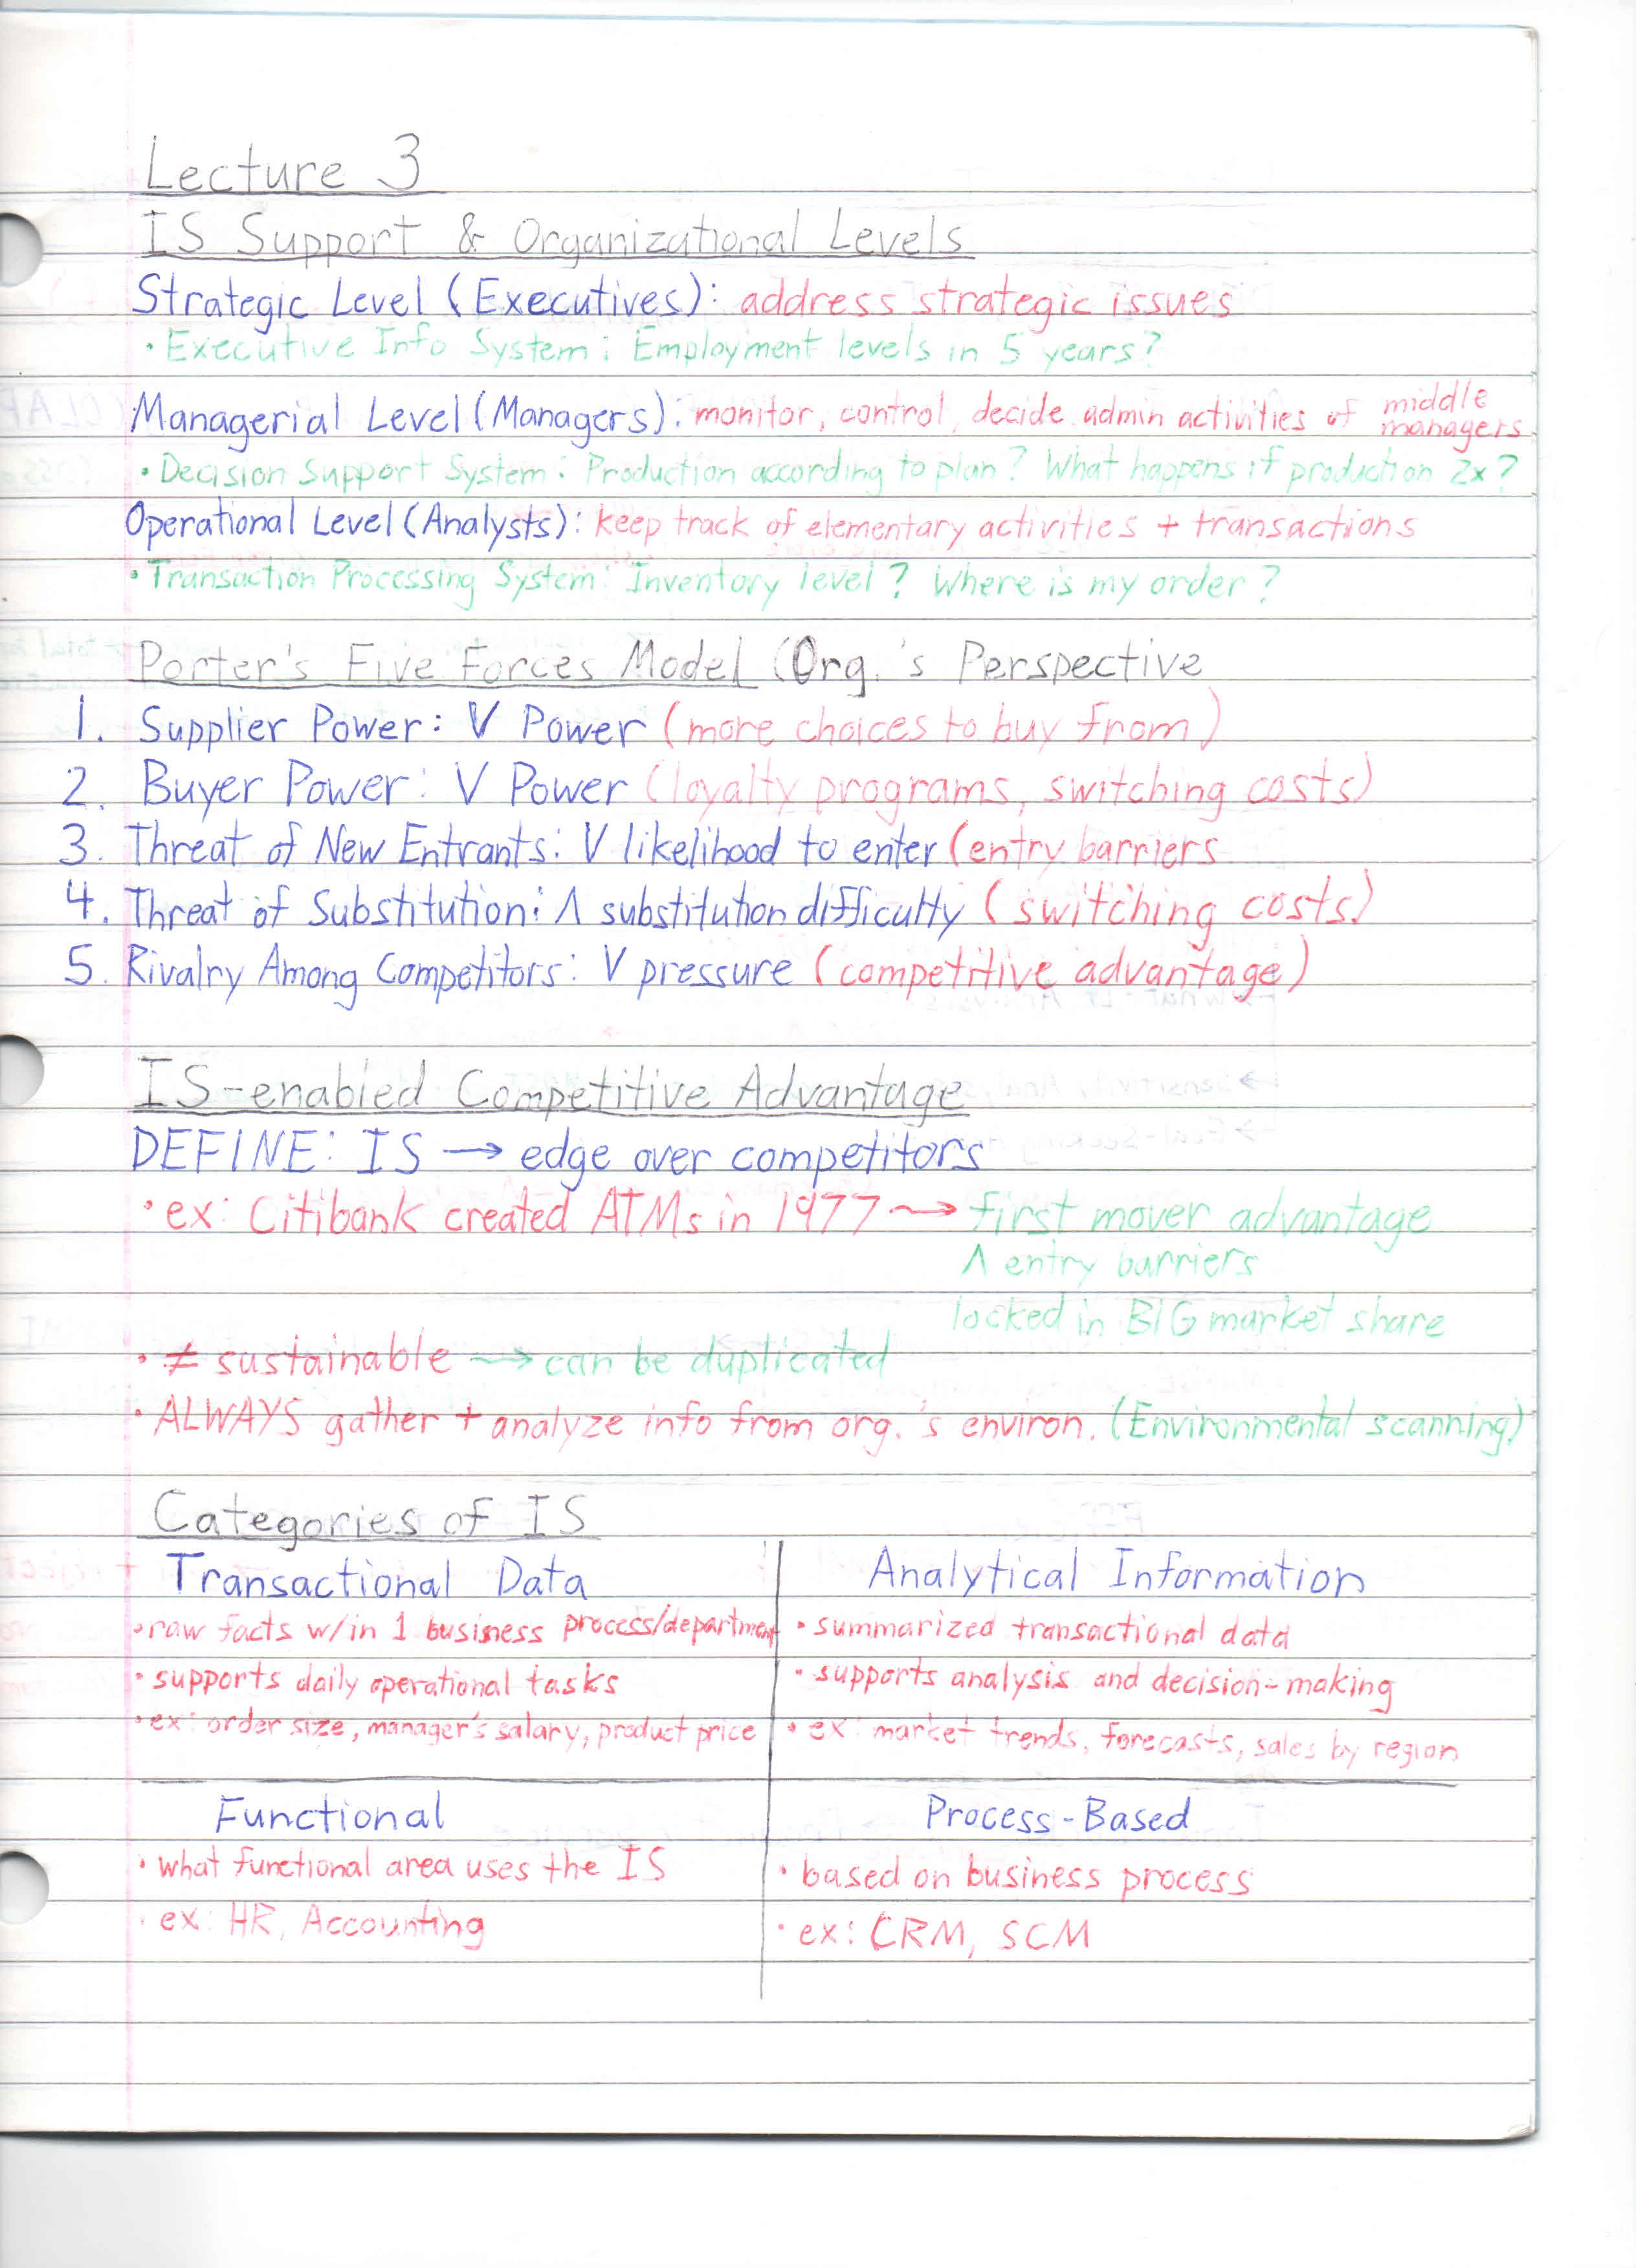 Lecture 3
IS Support & Organizational Levels
Strategic Level (Executives): address strategic issues
• Executive Info System: Employment levels in 5 years?
Managerial Level (Managers): monitor, control, decide admin activities of middle managers
• Decision Support System: Production according to plan? What happens if production 2x?
Operational Level (Analysts): keep track of elementary activities + transactions
• Transaction Processing System: Inventory level? Where is my order?
Porter's Five Forces Model (Org.'s Perspective
1. Supplier Power: V Power (more choices to buy from)
2. Buyer Power: V Power (loyalty programs, switching costs)
3. Threat of New Entrants: V likelihood to enter (entry barriers
4. Threat of Substitution: Λ substitution difficulty (switching costs)
5. Rivalry Among Competitors: V pressure (competitive advantage)
IS-enabled Competitive Advantage
DEFINE: IS → edge over competitors
• ex: Citibank created ATMs in 1977 → first mover advantage
Λ entry barriers
locked in BIG market share
• ≠ sustainable → can be duplicated
• ALWAYS gather + analyze info from org.'s environ. (Environmental scanning)
Categories of IS
Transactional Data
• raw facts w/in 1 business process/department
• supports daily operational tasks
• ex: order size, manager's salary, product price
Analytical Information
• summarized transactional data
• supports analysis and decision-making
• ex: market trends, forecasts, sales by region
Functional
• what functional area uses the IS
• ex: HR, Accounting
Process-Based
• based on business process
• ex: CRM, SCM